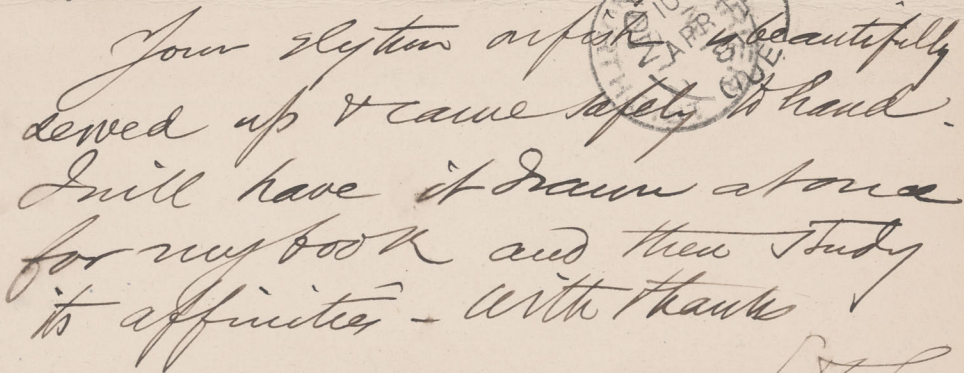 Your elytron is beautifully
served up & came safely to hand.
I will have it drawn at once
for my book and then study
its affinities - With thanks
QUE